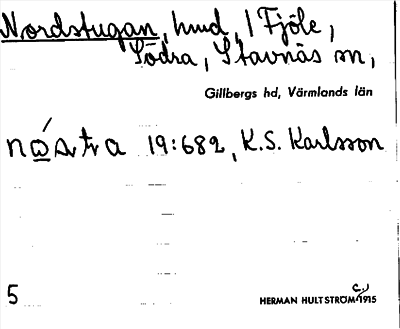 Nordstugan, hmd, 1 Fjöle,
Södra, Stavnäs sn,
Gillbergs hd, Värmlands län
19:682, K.S. Karlsson
5
HERMAN HULTSTRÖM 1915